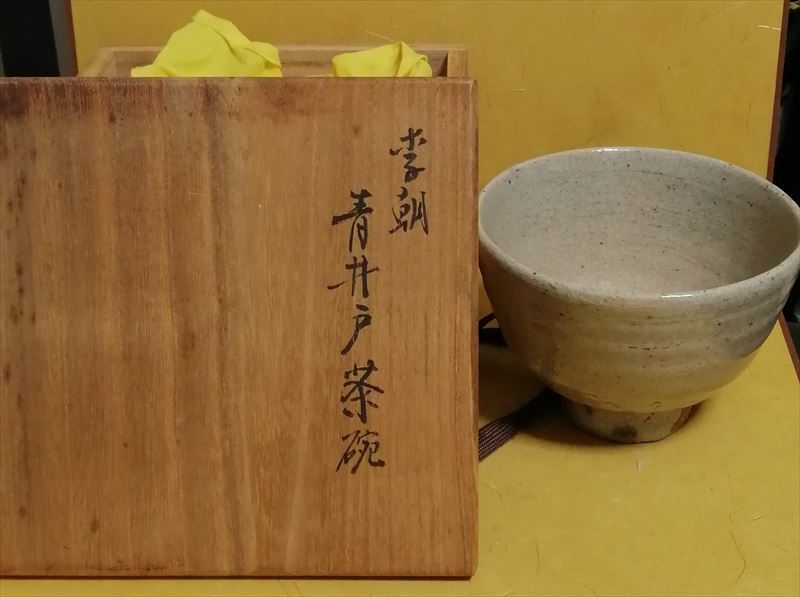 李朝
青井戸茶碗